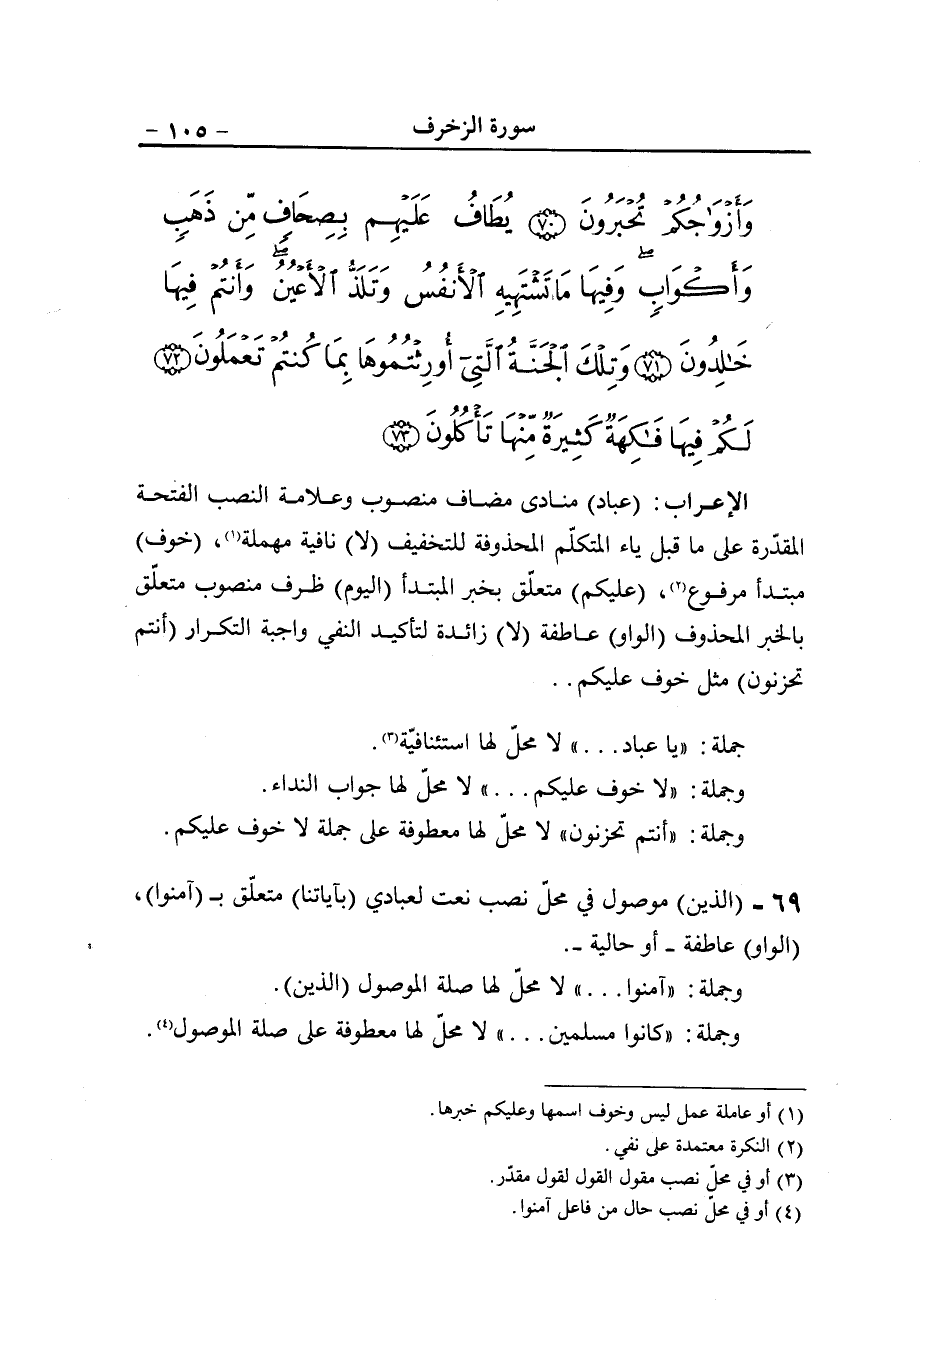 سورة الزخرف - ١٠٥ -
وَأَزْوَٰجُكُمْ تُحْبَرُونَ ﴿٧٠﴾ يُطَافُ عَلَيْهِم بِصِحَافٍ مِّن ذَهَبٍ
وَأَكْوَابٍ ۖ وَفِيهَا مَا تَشْتَهِيهِ ٱلْأَنفُسُ وَتَلَذُّ ٱلْأَعْيُنُ ۖ وَأَنتُمْ فِيهَا
خَٰلِدُونَ ﴿٧١﴾ وَتِلْكَ ٱلْجَنَّةُ ٱلَّتِىٓ أُورِثْتُمُوهَا بِمَا كُنتُمْ تَعْمَلُونَ ﴿٧٢﴾
لَكُمْ فِيهَا فَٰكِهَةٌ كَثِيرَةٌ مِّنْهَا تَأْكُلُونَ ﴿٧٣﴾
الإعراب: (عباد) منادى مضاف منصوب وعلامة النصب الفتحة
المقدّرة على ما قبل ياء المتكلّم المحذوفة للتخفيف (لا) نافية مهملة(١)، (خوف)
مبتدأ مرفوع(٢)، (عليكم) متعلّق بخبر المبتدأ (اليوم) ظرف منصوب متعلّق
بالخبر المحذوف (الواو) عاطفة (لا) زائدة لتأكيد النفي واجبة التكرار (أنتم
تحزنون) مثل خوف عليكم..
جملة: «يا عباد...» لا محلّ لها استئنافيّة(٣).
وجملة: «لا خوف عليكم...» لا محلّ لها جواب النداء.
وجملة: «أنتم تحزنون» لا محلّ لها معطوفة على جملة لا خوف عليكم.
٦٩ - (الذين) موصول في محلّ نصب نعت لعبادي (بآياتنا) متعلّق بـ (آمنوا)،
(الواو) عاطفة - أو حالية -.
وجملة: «آمنوا...» لا محلّ لها صلة الموصول (الذين).
وجملة: «كانوا مسلمين...» لا محلّ لها معطوفة على صلة الموصول(٤).
(١) أو عاملة عمل ليس وخوف اسمها وعليكم خبرها.
(٢) النكرة معتمدة على نفي.
(٣) أو في محلّ نصب مقول القول لقول مقدّر.
(٤) أو في محلّ نصب حال من فاعل آمنوا.